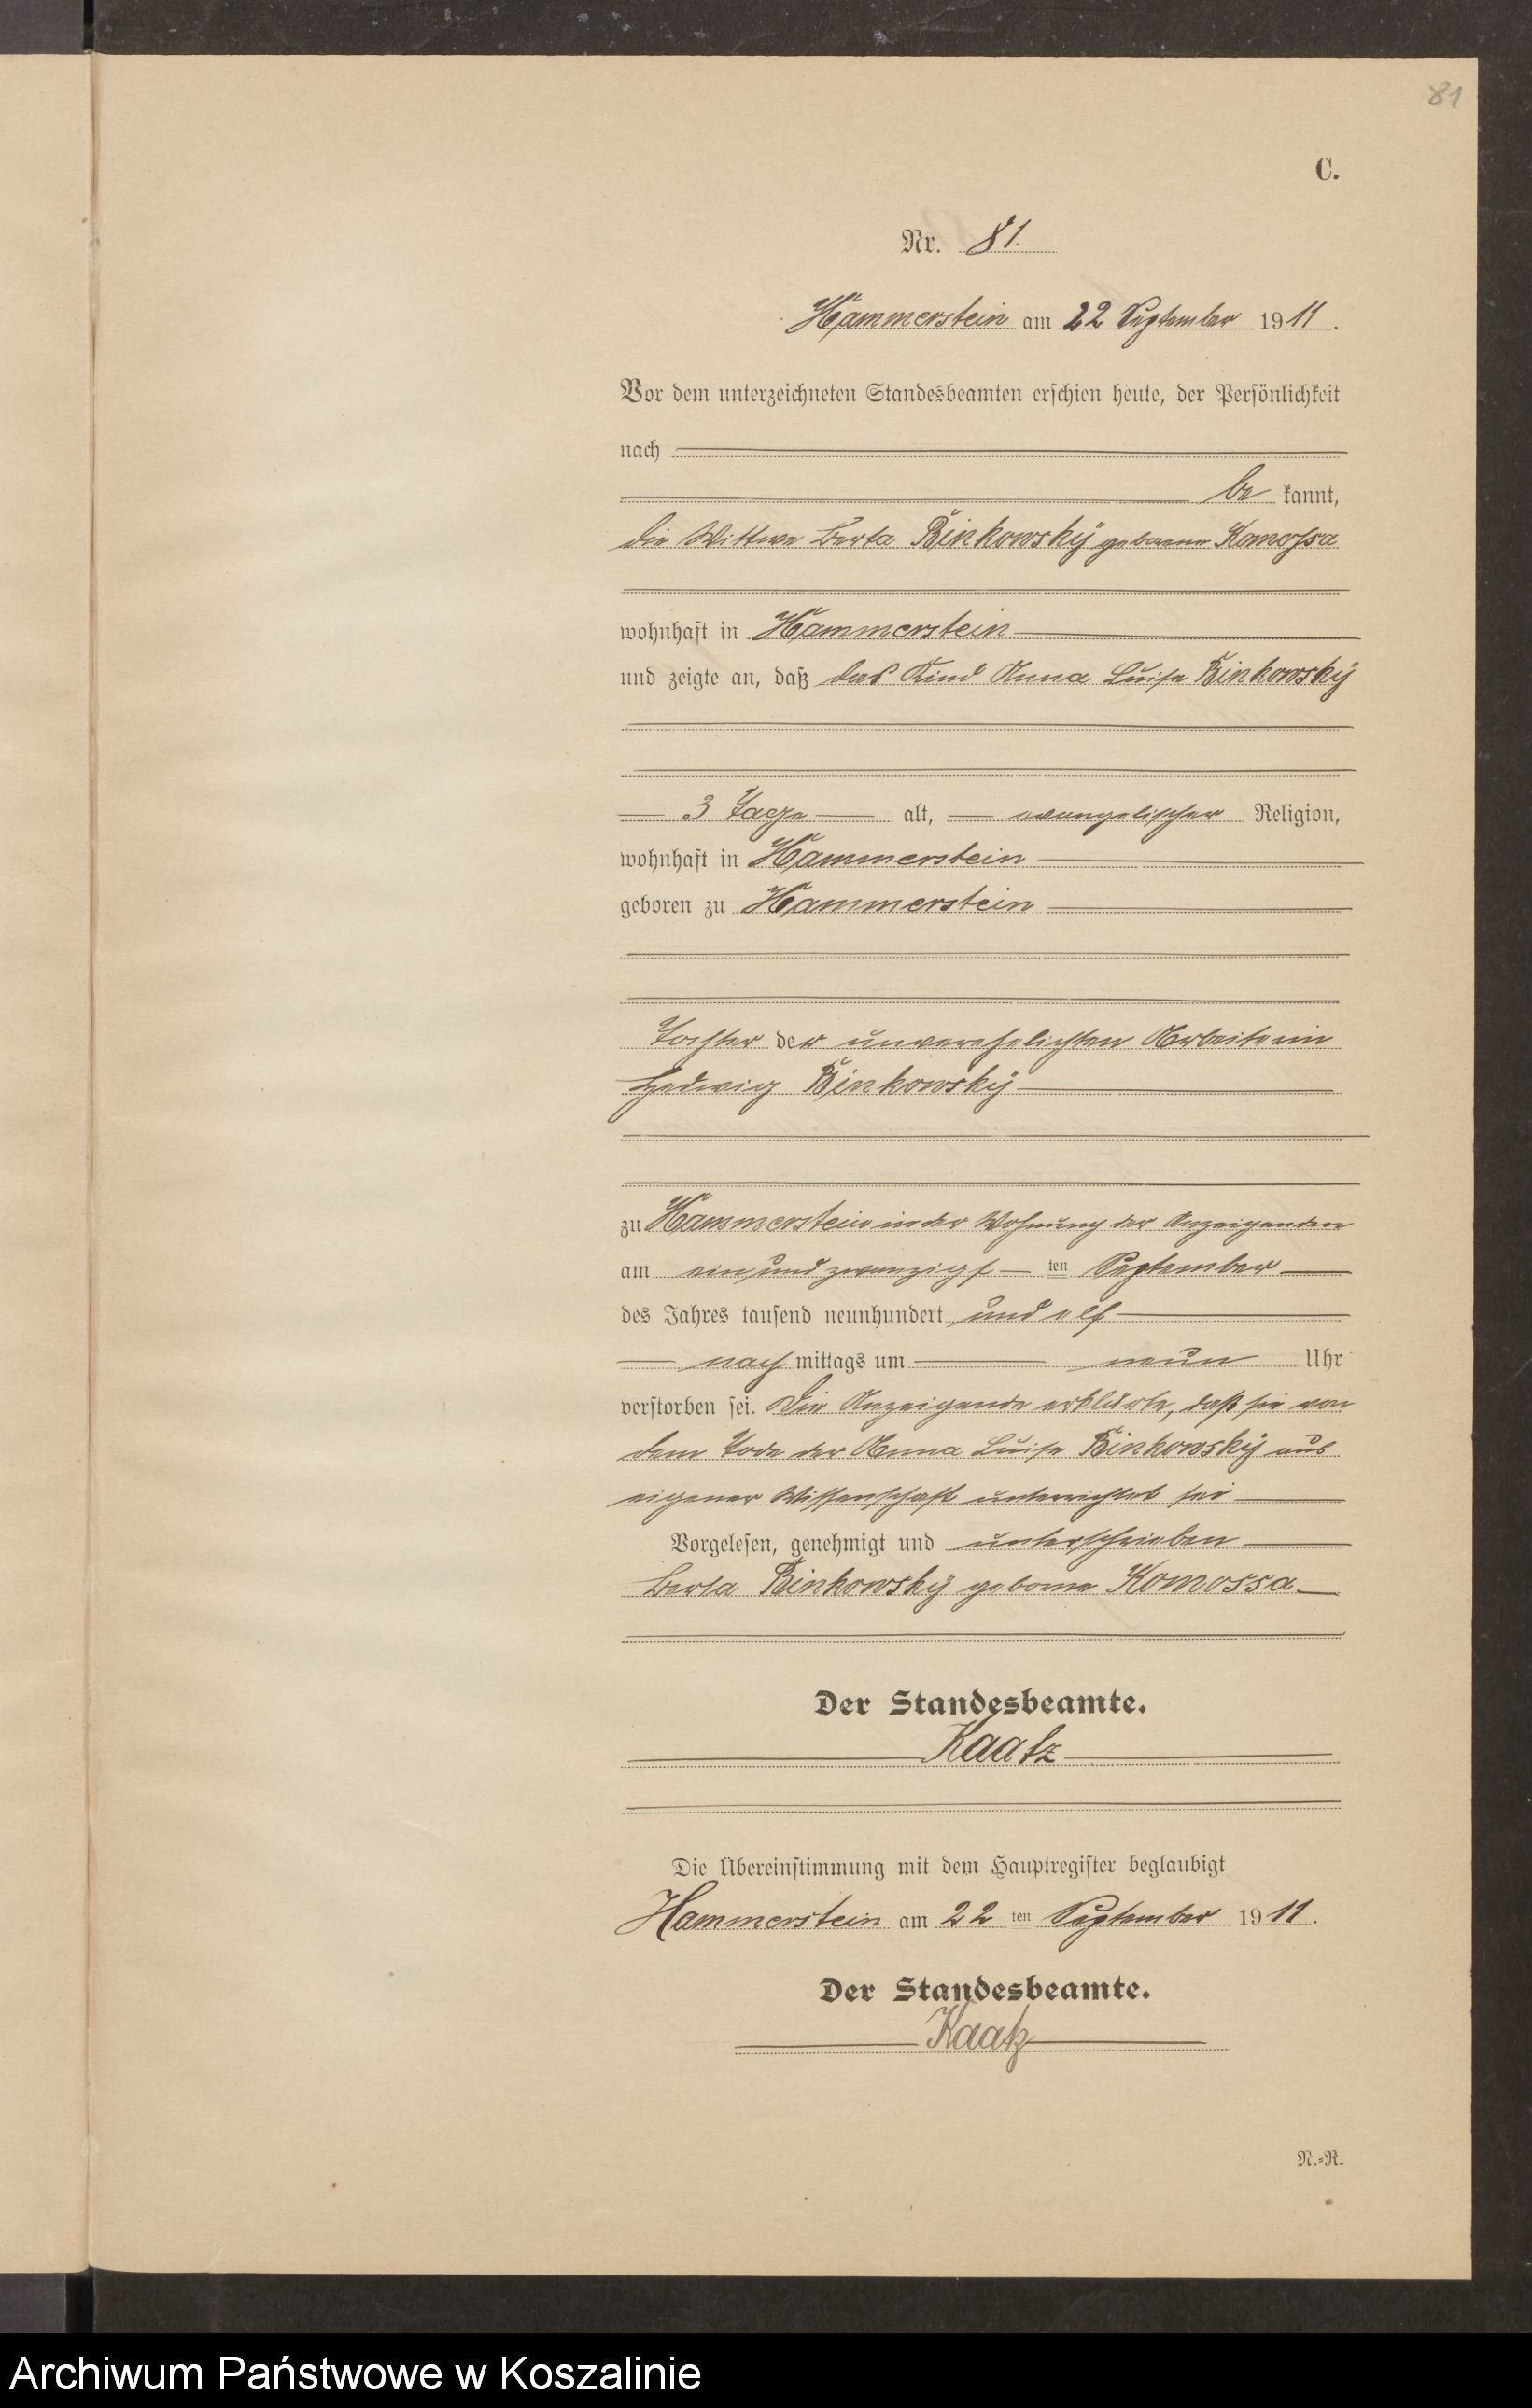 81
C.
Nr. 81.
Hammerstein am 22 September 1911.
Vor dem unterzeichneten Standesbeamten erschien heute, der Persönlichkeit
nach
be kannt,
die Wittwe Berta Binkowsky geborene Komossa
wohnhaft in Hammerstein
und zeigte an, daß das Kind Anna Luise Binkowsky
3 Tage alt, evangelischer Religion,
wohnhaft in Hammerstein
geboren zu Hammerstein
Tochter der unverehelichten Arbeiterin
Hedwig Binkowsky
zu Hammerstein in der Wohnung der Anzeigenden
am ein und zwanzigs ten September
des Jahres tausend neunhundert und elf
nach mittags um neun Uhr
verstorben sei. Die Anzeigende erklärte, daß sie von
dem Tode der Anna Luise Binkowsky aus
eigener Wissenschaft unterrichtet sei
Vorgelesen, genehmigt und unterschrieben
Berta Binkowsky geborne Komossa
Der Standesbeamte.
Kaatz
Die Übereinstimmung mit dem Hauptregister beglaubigt
Hammerstein am 22 ten September 1911.
Der Standesbeamte.
Kaatz
N.-R.
Archiwum Państwowe w Koszalinie